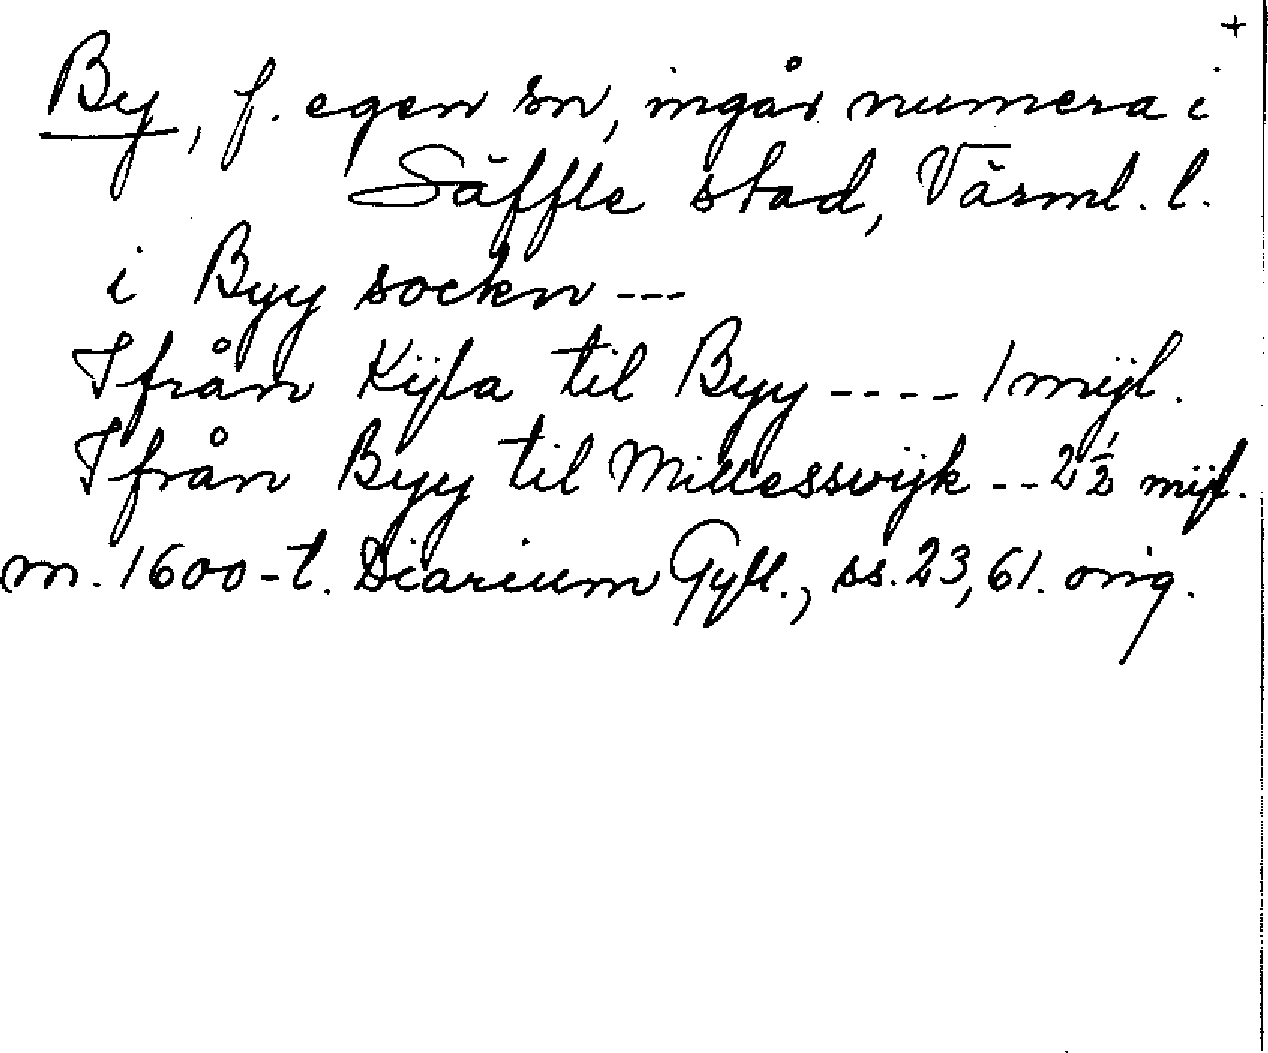 +
By, f. egen sn, ingår numera i
Säffle stad, Värml. l.
i Byy sockn ---
Ifrån Kÿla til Byy ---- 1 mÿl.
Ifrån Byy til Millesswijk -- 2 1/2 mÿl.
m. 1600-t. Diarium Gyll., ss. 23, 61. orig.